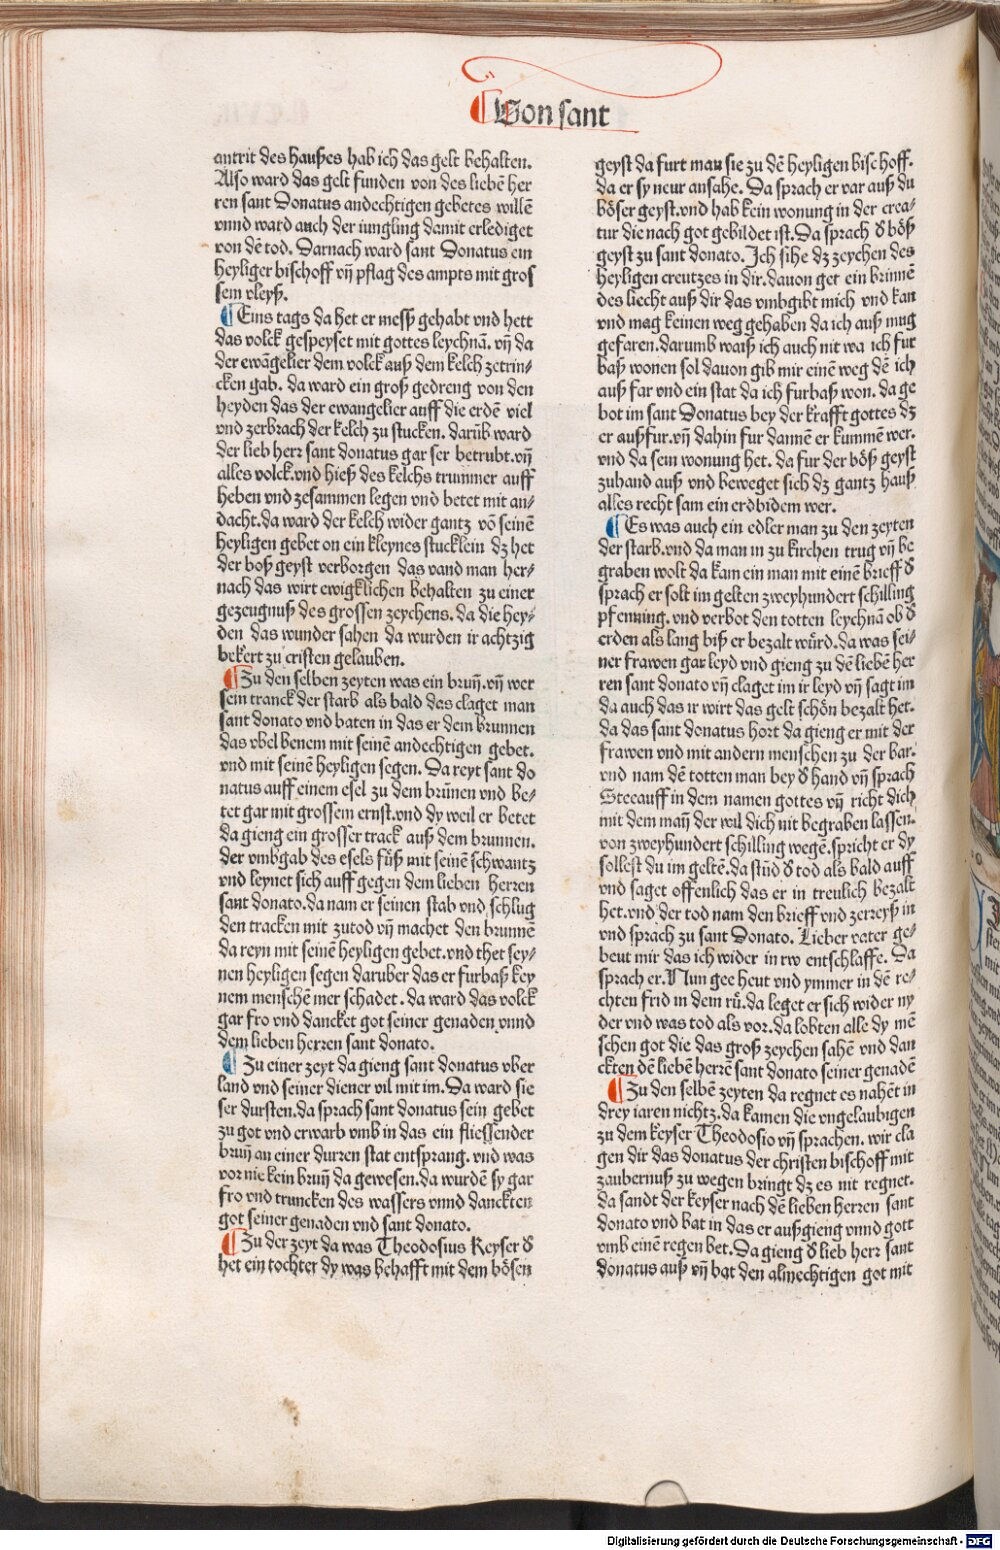 ¶ Von sant
antrit des haußes hab ich das gelt behalten.
Also ward das gelt funden von des liebẽ her
ren sant Donatus andechtigen gebetes willẽ
vnnd ward auch der iungling damit erlediget
von dẽ tod. Darnach ward sant Donatus ein
heyliger bischoff vñ pflag des ampts mit gros
sem vleyß.
¶ Eins tags da het er mess gehabt vnd hett
das volck gespeyset mit gottes leychnã. vñ da
der ewãgelier dem volck auß dem kelch zetrin⸗
cken gab. da ward ein groß gedreng von den
heyden das der ewangelier auff die erdẽ viel
vnd zerbrach der kelch zu stucken. darũb ward
der lieb herr sant donatus gar ser betrubt. vñ
alles volck. vnd hieß des kelchs trummer auff
heben vnd zesammen legen vnd betet mit an⸗
dacht. da ward der kelch wider gantz võ seinẽ
heyligen gebet on ein kleynes stucklein dz het
der boß geyst verborgen das vand man her⸗
nach das wirt ewigklichen behalten zu einer
gezeugnuß des grossen zeychens. da die hey⸗
den das wunder sahen da wurden ir achtzig
bekert zu cristen gelauben.
¶ Zu den selben zeyten was ein bruñ. vñ wer
sein tranck der starb als bald das claget man
sant donato vnd baten in das er dem brunnen
das vbel benem mit seinẽ andechtigen gebet.
vnd mit seinẽ heyligen segen. Da reyt sant do
natus auff einem esel zu dem brũnen vnd be⸗
tet gar mit grossem ernst. vnd dy weil er betet
da gieng ein grosser track auß dem brunnen.
der vmbgab des esels fũß mit seinẽ schwantz
vnd leynet sich auff gegen dem lieben herren
sant donato. da nam er seinen stab vnd schlug
den tracken mit zutod vñ machet den brunnẽ
da reyn mit seinẽ heyligen gebet. vnd thet sey⸗
nen heyligen segen daruber das er furbaß key
nem menschẽ mer schadet. da ward das volck
gar fro vnd dancket got seiner genaden vnnd
dem lieben herren sant donato.
¶ Zu einer zeyt da gieng sant donatus vber
land vnd seiner diener vil mit im. Da ward sie
ser dursten. da sprach sant donatus sein gebet
zu got vnd erwarb vmb in das ein fliessender
bruñ an einer durren stat entsprang. vnd was
vor nie kein bruñ da gewesen. da wurdẽ sy gar
fro vnd truncken des wassers vnnd danckten
got seiner genaden vnd sant donato.
¶ Zu der zeyt da was Theodosius Keyser d̕
het ein tochter dy was behafft mit dem bösen
geyst da furt man sie zu dẽ heyligen bischoff.
da er sy neur ansahe. Da sprach er var auß du
böser geyst. vnd hab kein wonung in der crea⸗
tur die nach got gebildet ist. Da sprach d̕ böß
geyst zu sant donato. Ich sihe dz zeychen des
heyligen creutzes in dir. dauon get ein brinnẽ
des liecht auß dir das vmbgibt mich vnd kan
vnd mag keinen weg gehaben da ich auß mug
gefaren. darumb waiß ich auch nit wa ich fur
baß wonen sol dauon gib mir einẽ weg dẽ ich
auß far vnd ein stat da ich furbaß won. da ge
bot im sant Donatus bey der krafft gottes dz
er außfur. vñ dahin fur dannẽ er kummẽ wer.
vnd da sein wonung het. da fur der böß geyst
zuhand auß vnd beweget sich dz gantz hauß
alles recht sam ein erdbidem wer.
¶ Es was auch ein edler man zu den zeyten
der starb. vnd da man in zu kirchen trug vñ be
graben wolt da kam ein man mit einẽ brieff d̕
sprach er solt im gelten zweyhundert schilling
pfenning. vnd verbot den totten leychnã ob d̕
erden als lang biß er bezalt wũrd. da was sei⸗
ner frawen gar leyd vnd gieng zu dẽ liebẽ her
ren sant donato vñ claget im ir leyd vñ sagt im
da auch das ir wirt das gelt schön bezalt het.
da das sant donatus hort da gieng er mit der
frawen vnd mit andern menschen zu der bar.
vnd nam dẽ totten man bey d̕ hand vñ sprach
Stee auff in dem namen gottes vñ richt dich
mit dem mañ der wil dich nit begraben lassen.
von zweyhundert schilling wegẽ. spricht er dy
sollest du im geltẽ. da stũd d̕ tod als bald auff
vnd saget offenlich das er in treulich bezalt
het. vnd der tod nam den brieff vnd zerreyß in
vnd sprach zu sant Donato. Lieber vater ge⸗
beut mir das ich wider in rw entschlaffe. Da
sprach er. Nun gee heut vnd ymmer in dẽ re⸗
chten frid in dem rũ. da leget er sich wider ny
der vnd was tod als vor. da lobten alle dy mẽ
schen got die das groß zeychen sahẽ vnd dan
ckten dẽ liebẽ herrẽ sant donato seiner genadẽ
¶ Zu den selbẽ zeyten da regnet es nahẽt in
drey iaren nichtz. da kamen die vngelaubigen
zu dem keyser Theodosio vñ sprachen. wir cla
gen dir das donatus der christen bischoff mit
zaubernuß zu wegen bringt dz es nit regnet.
da sandt der keyser nach dẽ lieben herren sant
donato vnd bat in das er außgieng vnnd gott
vmb einẽ regen bet. Da gieng d̕ lieb herr sant
donatus auß vñ bat den almechtigen got mit
Digitalisierung gefördert durch die Deutsche Forschungsgemeinschaft - DFG